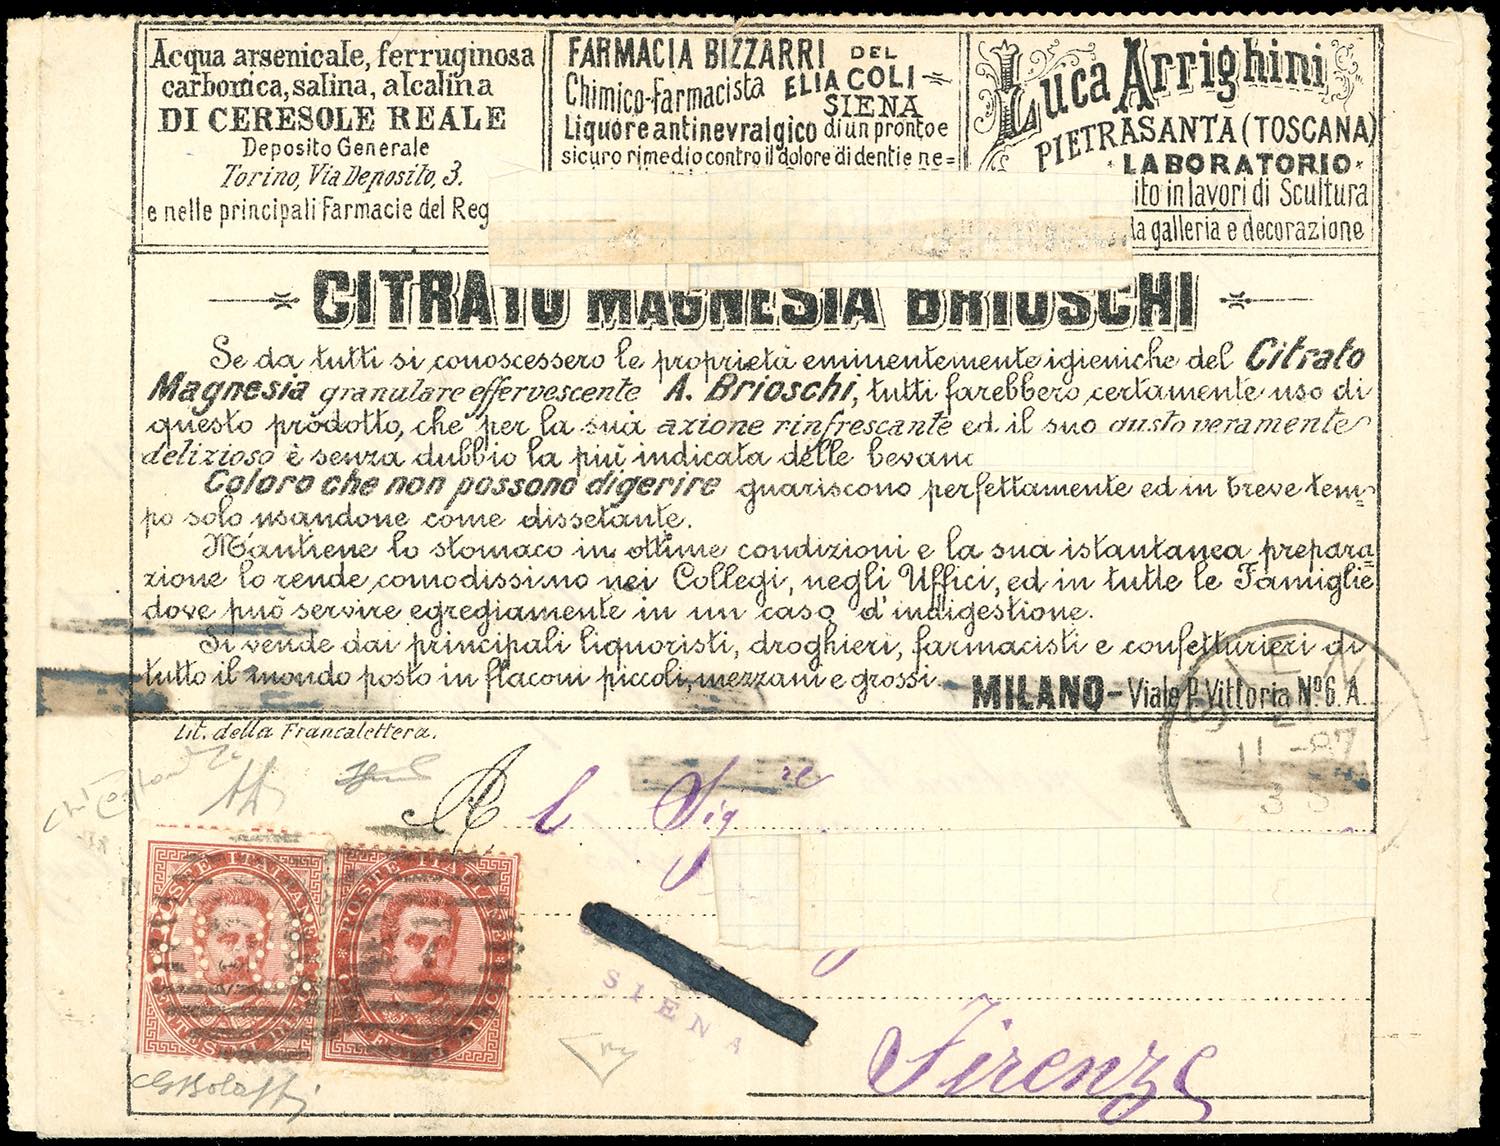 Acqua arsenicale, ferruginosa
carbonica, salina, alcalina
DI CERESOLE REALE
Deposito Generale
Torino, Via Deposito, 3.
e nelle principali Farmacie del Reg
FARMACIA BIZZARRI DEL
Chimico-Farmacista ELIA COLI
SIENA
Liquore antinevralgico di un pronto e
sicuro rimedio contro il dolore di denti e ne=
Luca Arrighini
PIETRASANTA (TOSCANA)
LABORATORIO
ito in lavori di Scultura
da galleria e decorazione
CITRATO MAGNESIA BRIOSCHI
Se da tutti si conoscessero le proprietà eminentemente igieniche del Citrato
Magnesia granulare effervescente A. Brioschi, tutti farebbero certamente uso di
questo prodotto, che per la sua azione rinfrescante ed il suo gusto veramente
delizioso è senza dubbio la più indicata delle bevan
Coloro che non possono digerire guariscono perfettamente ed in breve tem=
po solo usandone come dissetante.
Mantiene lo stomaco in ottime condizioni e la sua istantanea prepara=
zione lo rende comodissimo nei Collegi, negli Uffici, ed in tutte le Famiglie
dove può servire egregiamente in un caso d'indigestione.
Si vende dai principali liquoristi, droghieri, farmacisti e confetturieri di
tutto il mondo posto in flaconi piccoli, mezzani e grossi.
MILANO - Viale P. Vittoria N.º 6. A.
Lit. della Francalettera.
Al Sigre
SIENA
Firenze